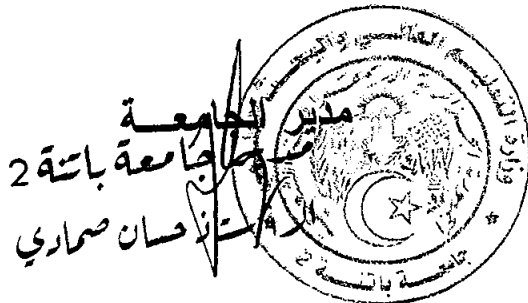 مدير الجامعة
مدير جامعة باتنة 2
الأستاذ حسان صمادي
وزارة التعليم العالي والبحث
جامعة باتنة 2